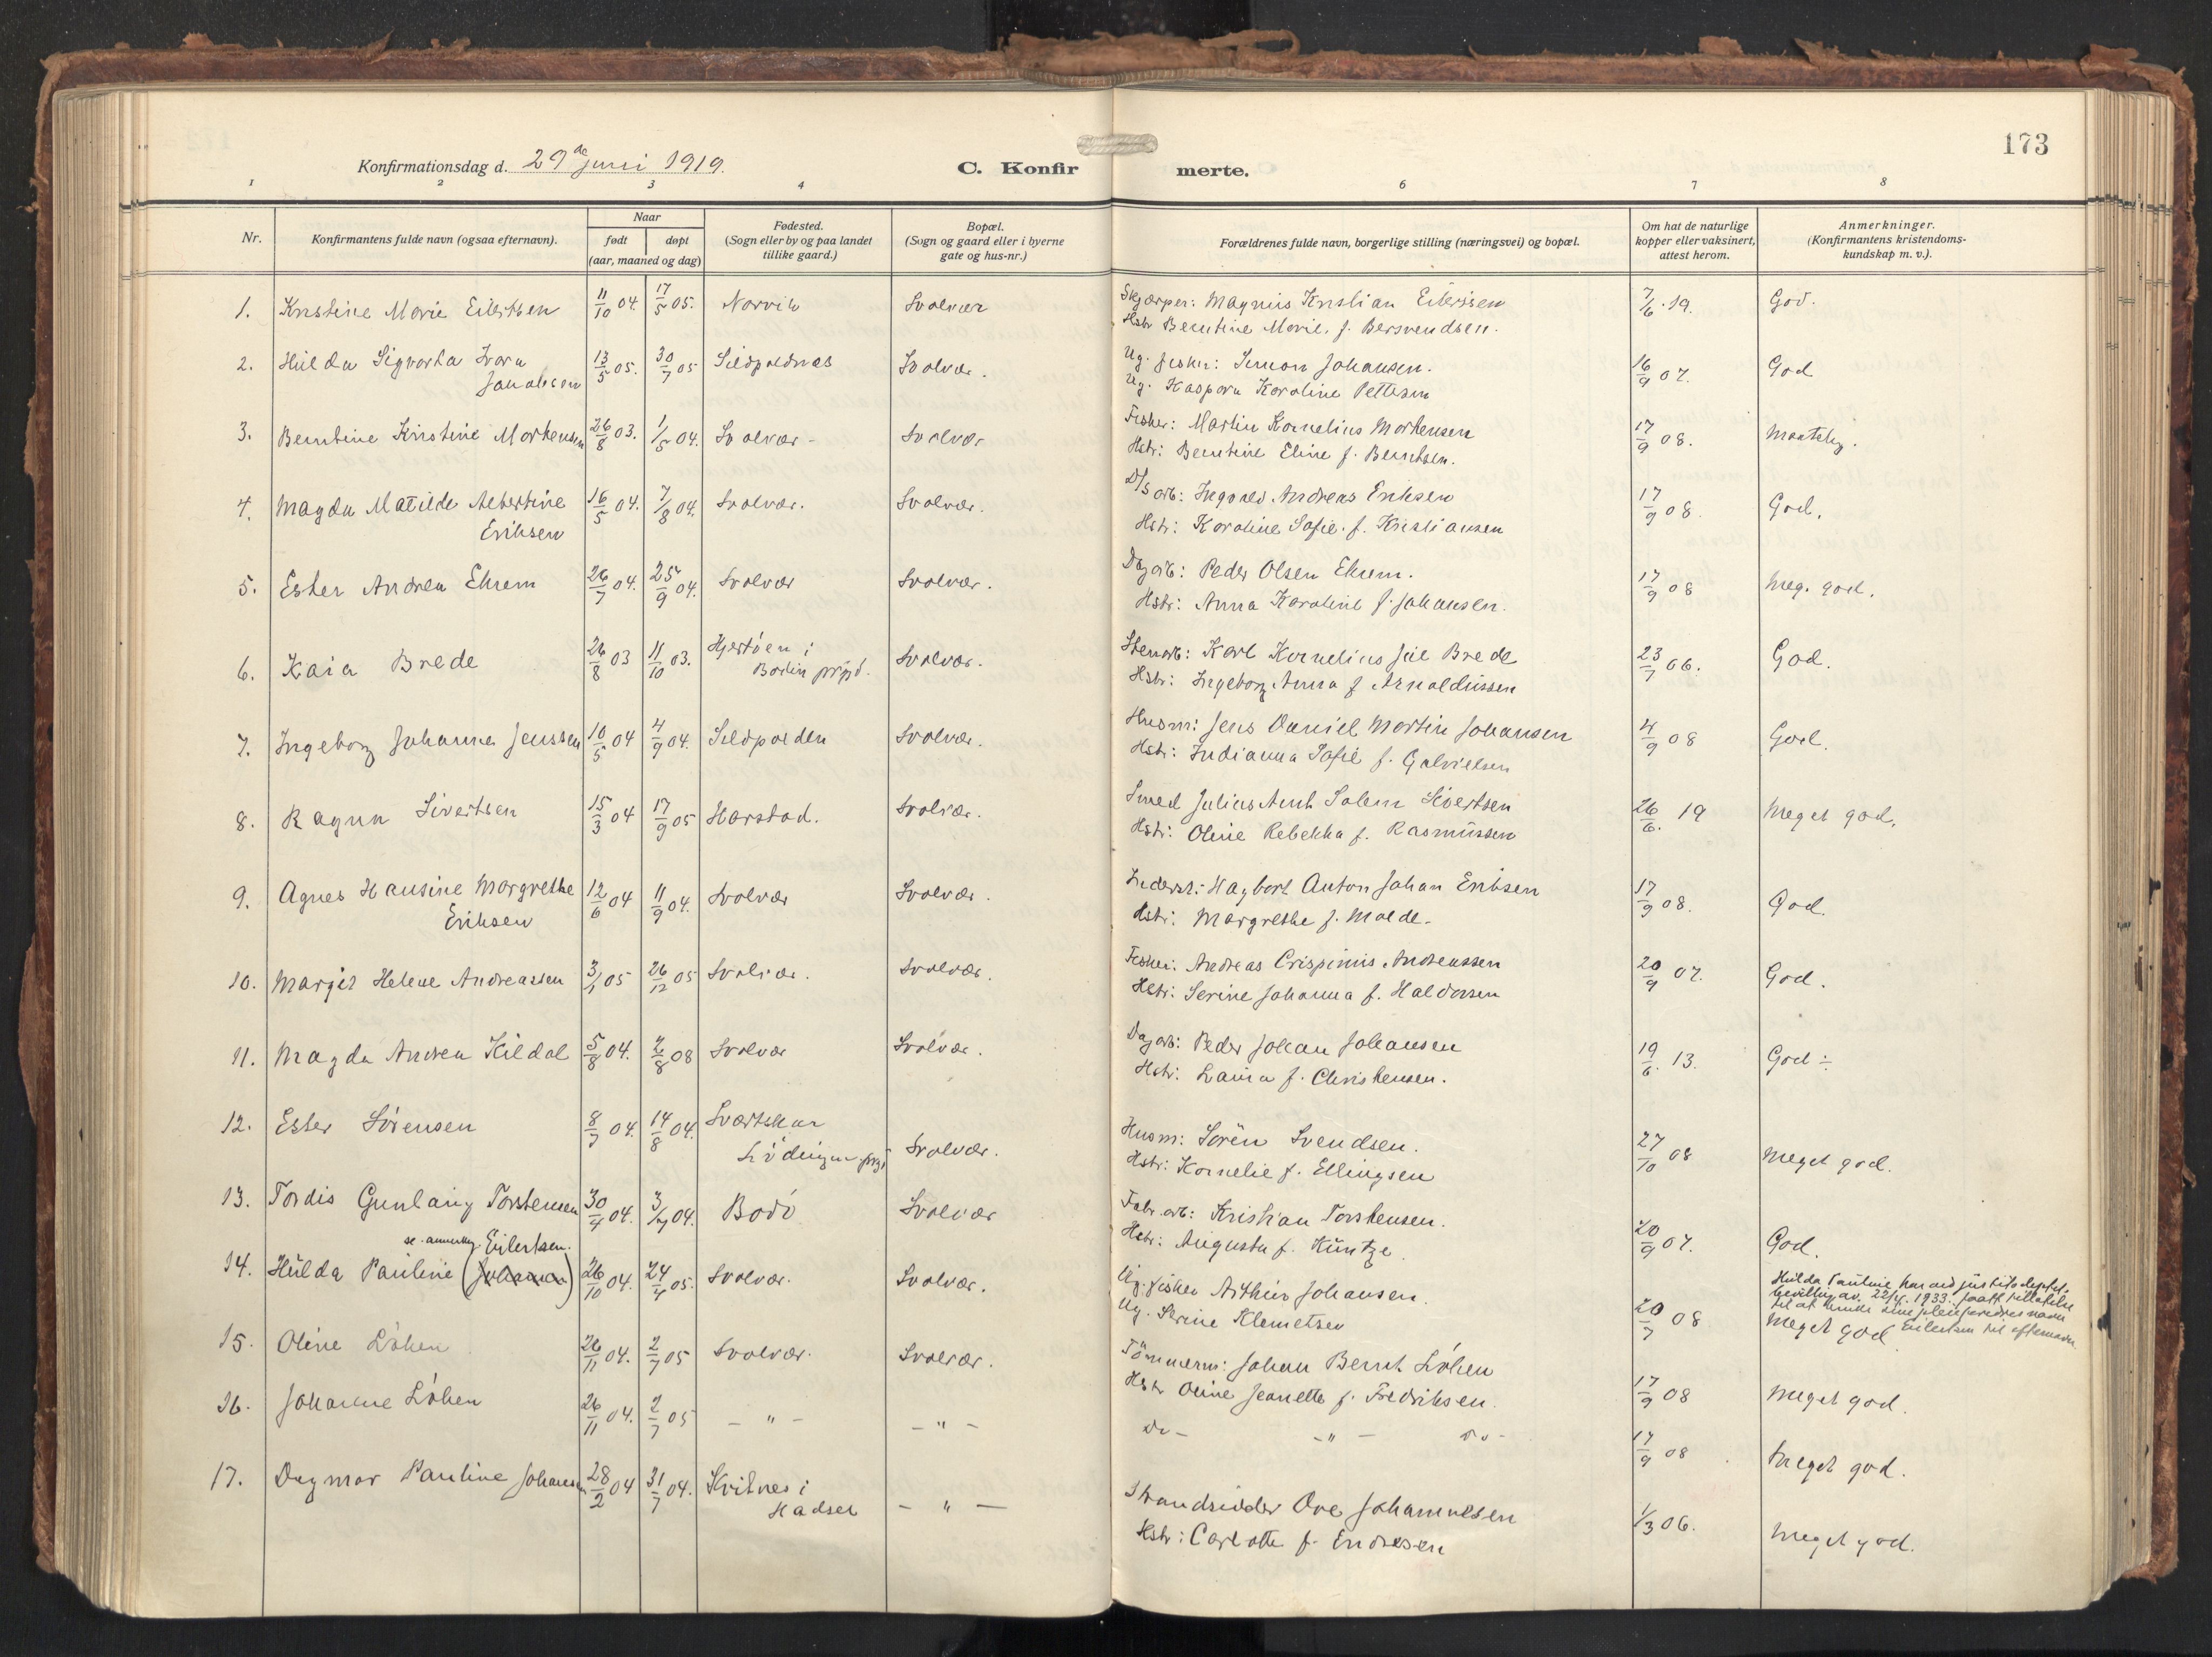 173
Konfirmationsdag d. 29de juni 1919.
C. Konfirmerte.
1 2 3 4 6 7 8
Nr.
Konfirmantens fulde navn (ogsaa efternavn).
Naar
født døpt
(aar, maaned og dag)
Fødested.
(Sogn eller by og paa landet
tillike gaard.)
Bopæl.
(Sogn og gaard eller i byerne
gate og hus-nr.)
Forældrenes fulde navn, borgerlige stilling (næringsvei) og bopæl.
Om hat de naturlige
kopper eller vaksinert,
attest herom.
Anmerkninger.
(Konfirmantens kristendoms-
kundskap m. v.).
1. Kristine Marie Eilertsen 11/10 04. 17/5 05. Narvik Svolvær Skjærper: Magnus Kristian Eilertsen 7/6 19. God.
Hstr Berntine Marie. f. Bersvendsen.
2. Hulda Sigvarda Ivara 13/5 05. 30/7 05 Sildpoldnes Svolvær. Ug. fisker: Simon Johansen. 16/9 07. God
Jakobsen Ug. Kaspara Karoline Pettersen
3. Berntine Kristine Mortensen 26/8 03. 1/5 04. Svolvær - Svolvær Fisker: Martin Kornelius Mortensen 17/9 08. Maatelig.
Hstr: Berntine Eline f. Berntsen.
4. Magda Matilde Albertine 16/5 04. 7/8 04. Svolvær. Svolvær. D/S arb: Ingvald Andreas Eriksen 17/9 08. God.
Eriksen Hstr: Karoline Sofie. f. Kristiansen
5. Ester Andrea Ekrem 26/7 04. 25/9 04. Svolvær Svolvær. Dagarb: Peder Olsen Ekrem. 17/9 08 Meg. god.
Hstr: Anna Karoline f. Johansen.
6. Kaia Brede 26/8 03 11/10 03. Hjertøen i Svolvær. Stenarb: Karl Kornelius Brede 23/7 06. God.
Bodin prgjd. Hstr: Ingeborg Anna f Arnoldussen
7. Ingeborg Johanna Jenssen 10/5 04 4/9 04. Sildpolden Svolvær. Husm: Jens Daniel Martin Johansen 4/9 08 God.
Hstr: Indianna Sofie f. Gabrielsen
8. Ragna Sivertsen 15/3 04 17/9 05 Harstad. Svolvær. Smed Julius Salem Sivertsen 26/6. 19 Meget god.
Hstr: Oline Rebekka f. Rasmussen
9. Agnes Hansine Margrethe 12/6 04 11/9 04. Svolvær Svolvær. Inderst: Hagbart Anton Johan Eriksen 17/9 08. God.
Eriksen Hstr: Margrethe f. Molde.
10. Margit Helene Andreassen 3/1 05 26/12 05 Svolvær. Svolvær. Fisker: Andreas Crispinus Andreassen 20/9 07. God.
Hstr: Serine Johanna f. Haldorsen
11. Magda Andrea Kildal 5/8 04. 2/8 08 Svolvær Svolvær. Dagarb: Peder Johan Johansen 19/6. 13. God ÷
Hstr: Laura f. Christensen.
12. Ester Sørensen 8/7 04. 14/8 04. Sværtskar Svolvær. Husm: Sørën Svendsen. 27/10 08 Meget god.
Lödingen prgj Hstr: Kornelie f. Ellingsen
13. Tordis Gunlaug Torstensen 30/4 04. 3/7 04. Bodö Svolvær Fabr. arb: Kristian Torstensen. 20/9 07. God.
Hstr: Augusta f. Küntze.
se anmerkn. Eilertsen.
14. Hulda Pauline (Johansen) 26/10 04. 24/4 05. Svolvær. Svolvær. Ug. fisker Arthur Johansen. 20/7 08 Meget god
Ug. Serine Klemetsen
Hulda Pauline har ved justitsdeptet.
bevilling av 22/4. 1933. faatt tillatelse
til at bruke sine pleieforeldres navn
Eilertsen til efternavn
15. Oline Löken 26/11 04. 2/7 05 Svolvær. Svolvær. Tömmerm: Johan Bernt Löken 17/9 08 Meget god.
Hstr Oline Jeanette f. Fredriksen.
16. Johanne Löken 26/11 04. 2/7 05 - " - - " - Do - - " - Do - 17/9 08 Meget god.
17. Dagmar Pauline Johansen 28/2 04 31/7 04. Kvitnes i - " - Strandsidder Ove Johannesen 1/3 06. Meget god.
Hadsel Hstr: Carlotte f. Endresen